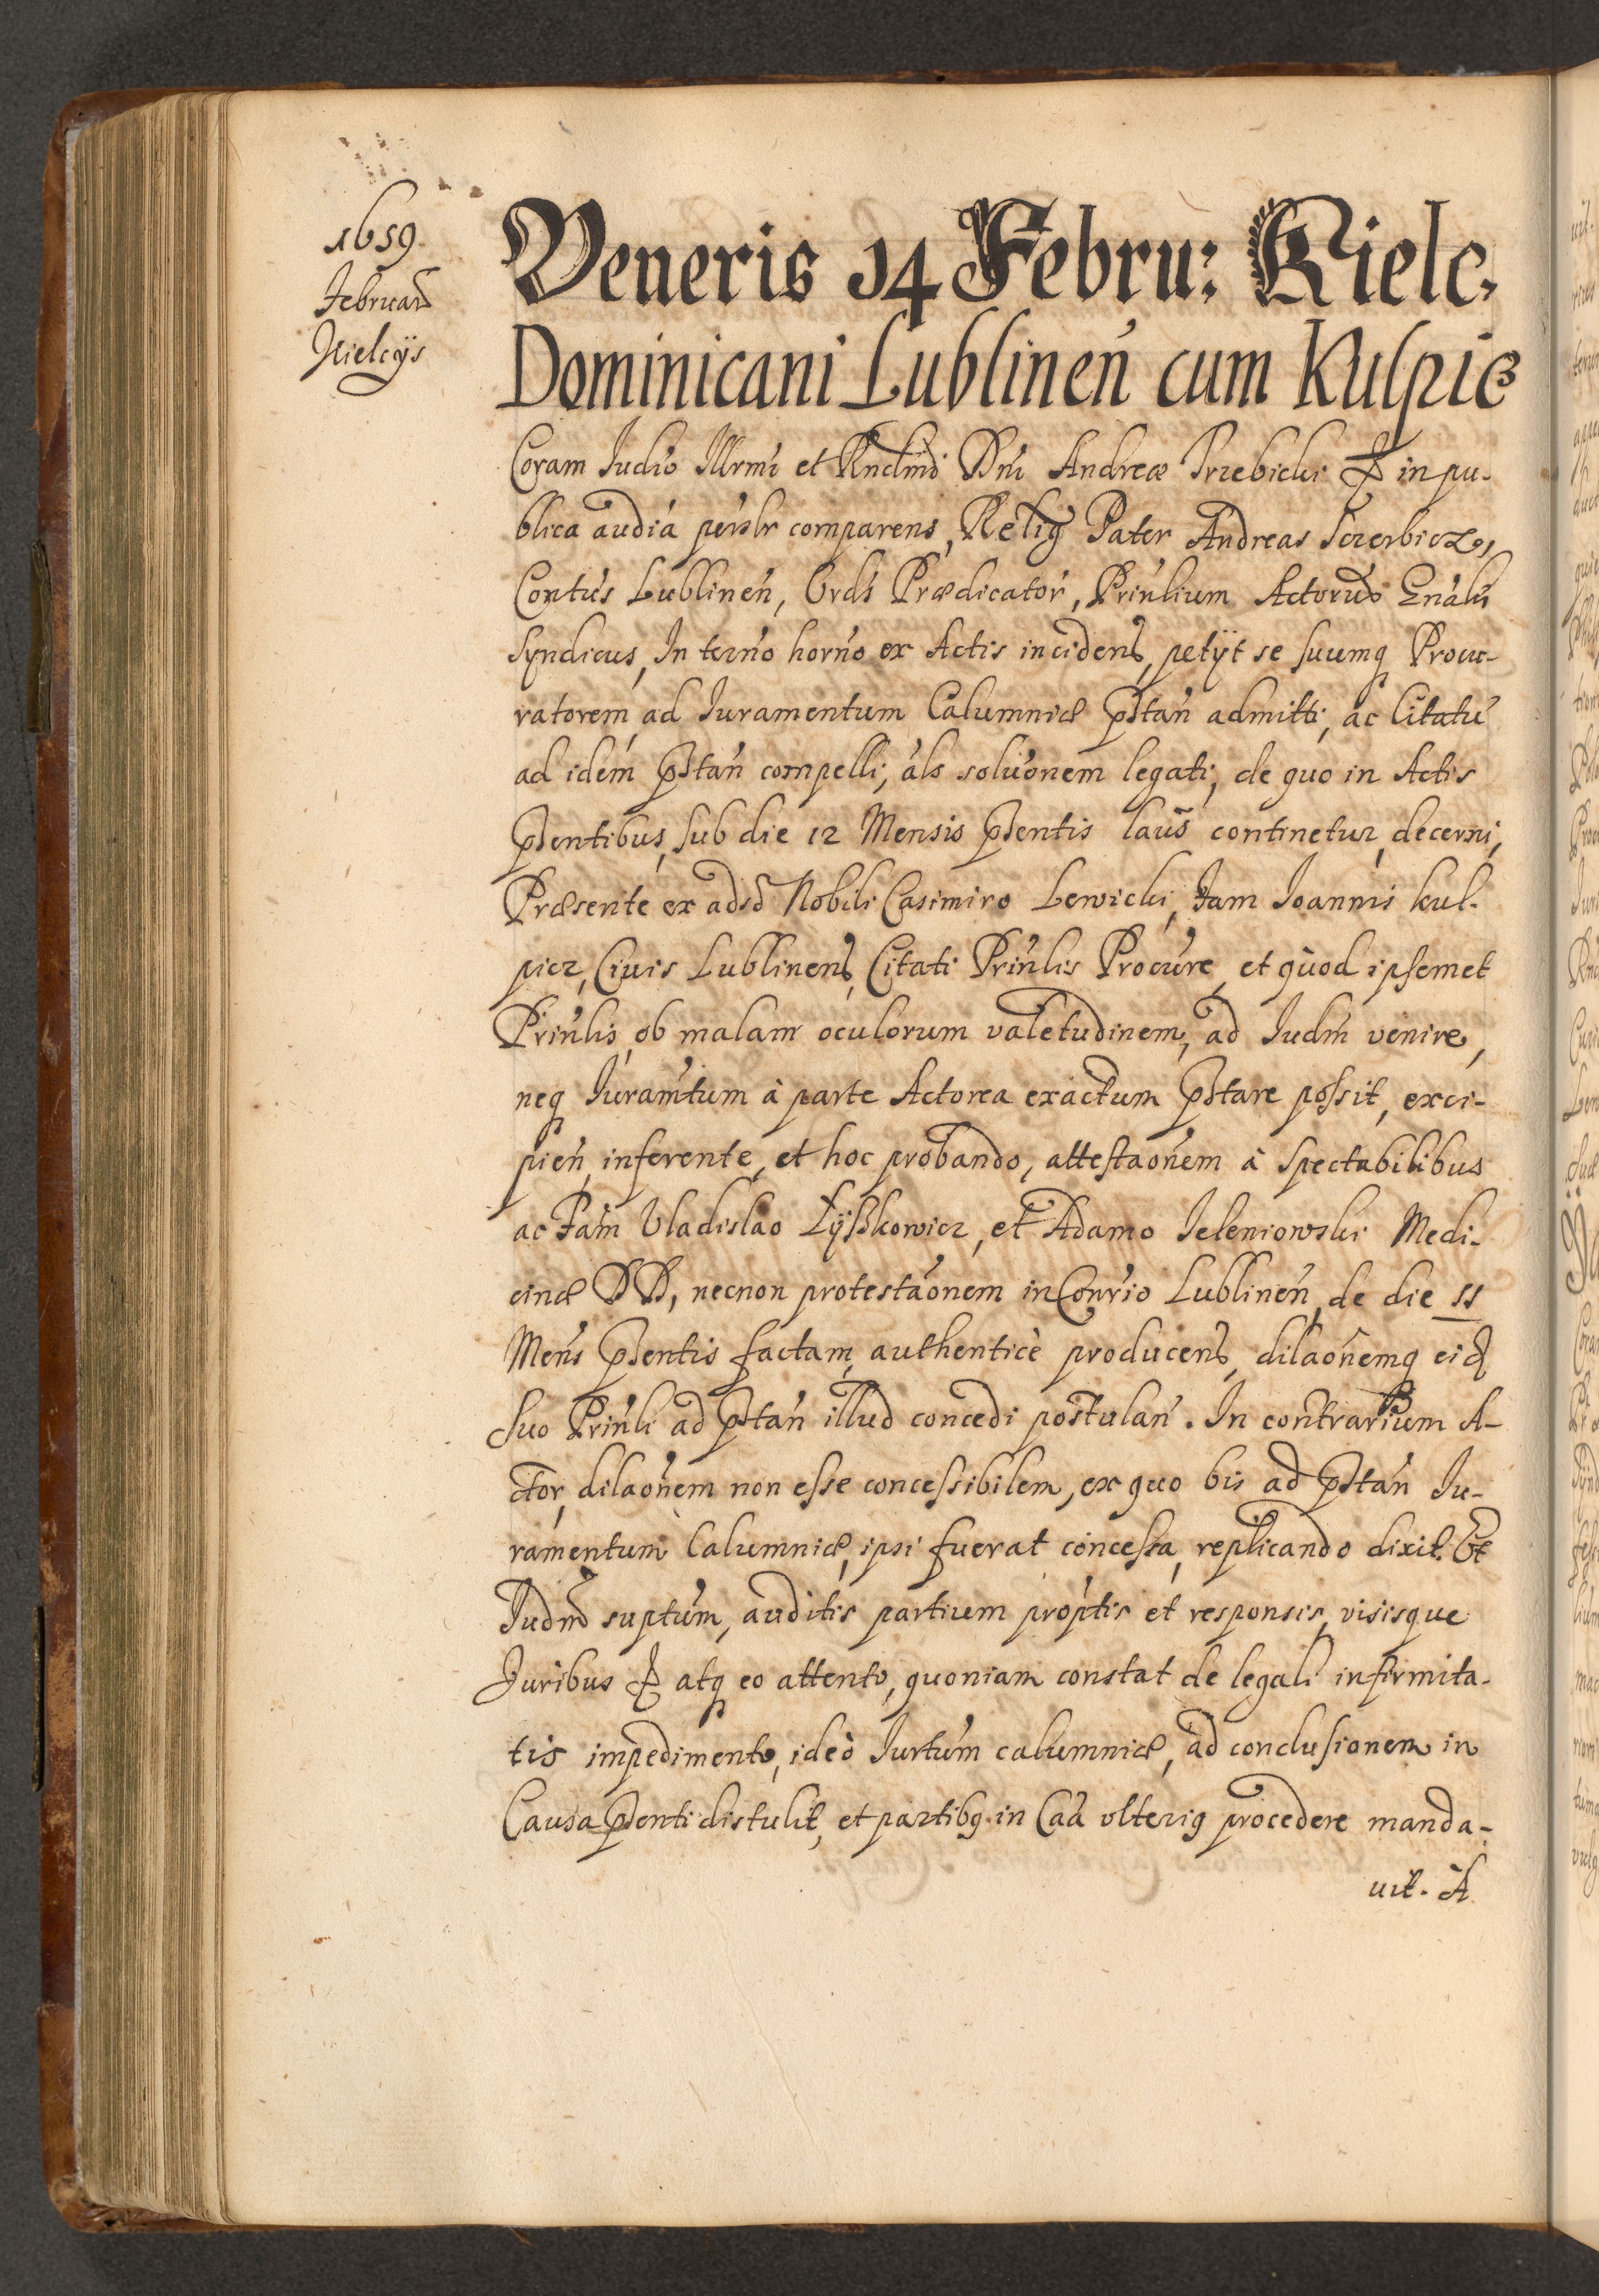 1659.
Februarÿ
Kielcÿs
Veneris 14 Febru: Kielc,
Dominicani Lublineń cum Kulpicz
Coram Iudio Illrmi et Rndmi Dni Andreæ Trzebicki & in pu-
blica audiá persłr comparens, Relig Pater Andreas Szerbicz,
Contus Lublineń, Ords Prædicator, Prinlium Actorum Gnalis
Syndicus, In termo horno ex Actis incidens, petÿt se suumq Procu-
ratorem, ad Iuramentum Calumniæ pstan admitti, ac Citatū
ad idem pstan compelli, als soluonem legati, de quo in Actis
psentibus, sub die 12 Mensis psentis laus continetur, decerni,
Præsente ex adso Nobili Casimiro Lewicki, Fam Joannis Kul-
picz, Ciuis Lublinens, Citati Prinlis Procure, et quod ipsemet
Prinlis, ob malam oculorum valetudinem, ad Iudm venire,
neq Iuramtum à parte Actorea exactum pstare possit, exci-
pien, inferente, et hoc probando, attestaonem à Spectabilibus
ac Fam Vladislao Lÿszkowicz, et Adamo Jeleniowski Medi-
cinæ DD, necnon protestaonem in Conrio Lublinen, de die 11
Mens psentis factam, authenticè producens, dilaonemq eid
suo Prinli ad pstan illud concedi postulan. In contrarium A-
ctor, dilaonem non esse concessibilem, ex quo bis ad pstan Iu-
ramentum Calumniæ, ipsi fuerat concessa, replicando dixit. Et
Iudm suptum, auditis partium proptis et responsis, visisque
Iuribus & atq eo attento, quoniam constat de legali infirmita-
tis impedimento, ideò Iurtum calumniæ, ad conclusionem in
Causa psenti distulit, et partibq in Caa vlteriq procedere manda-
uit. A